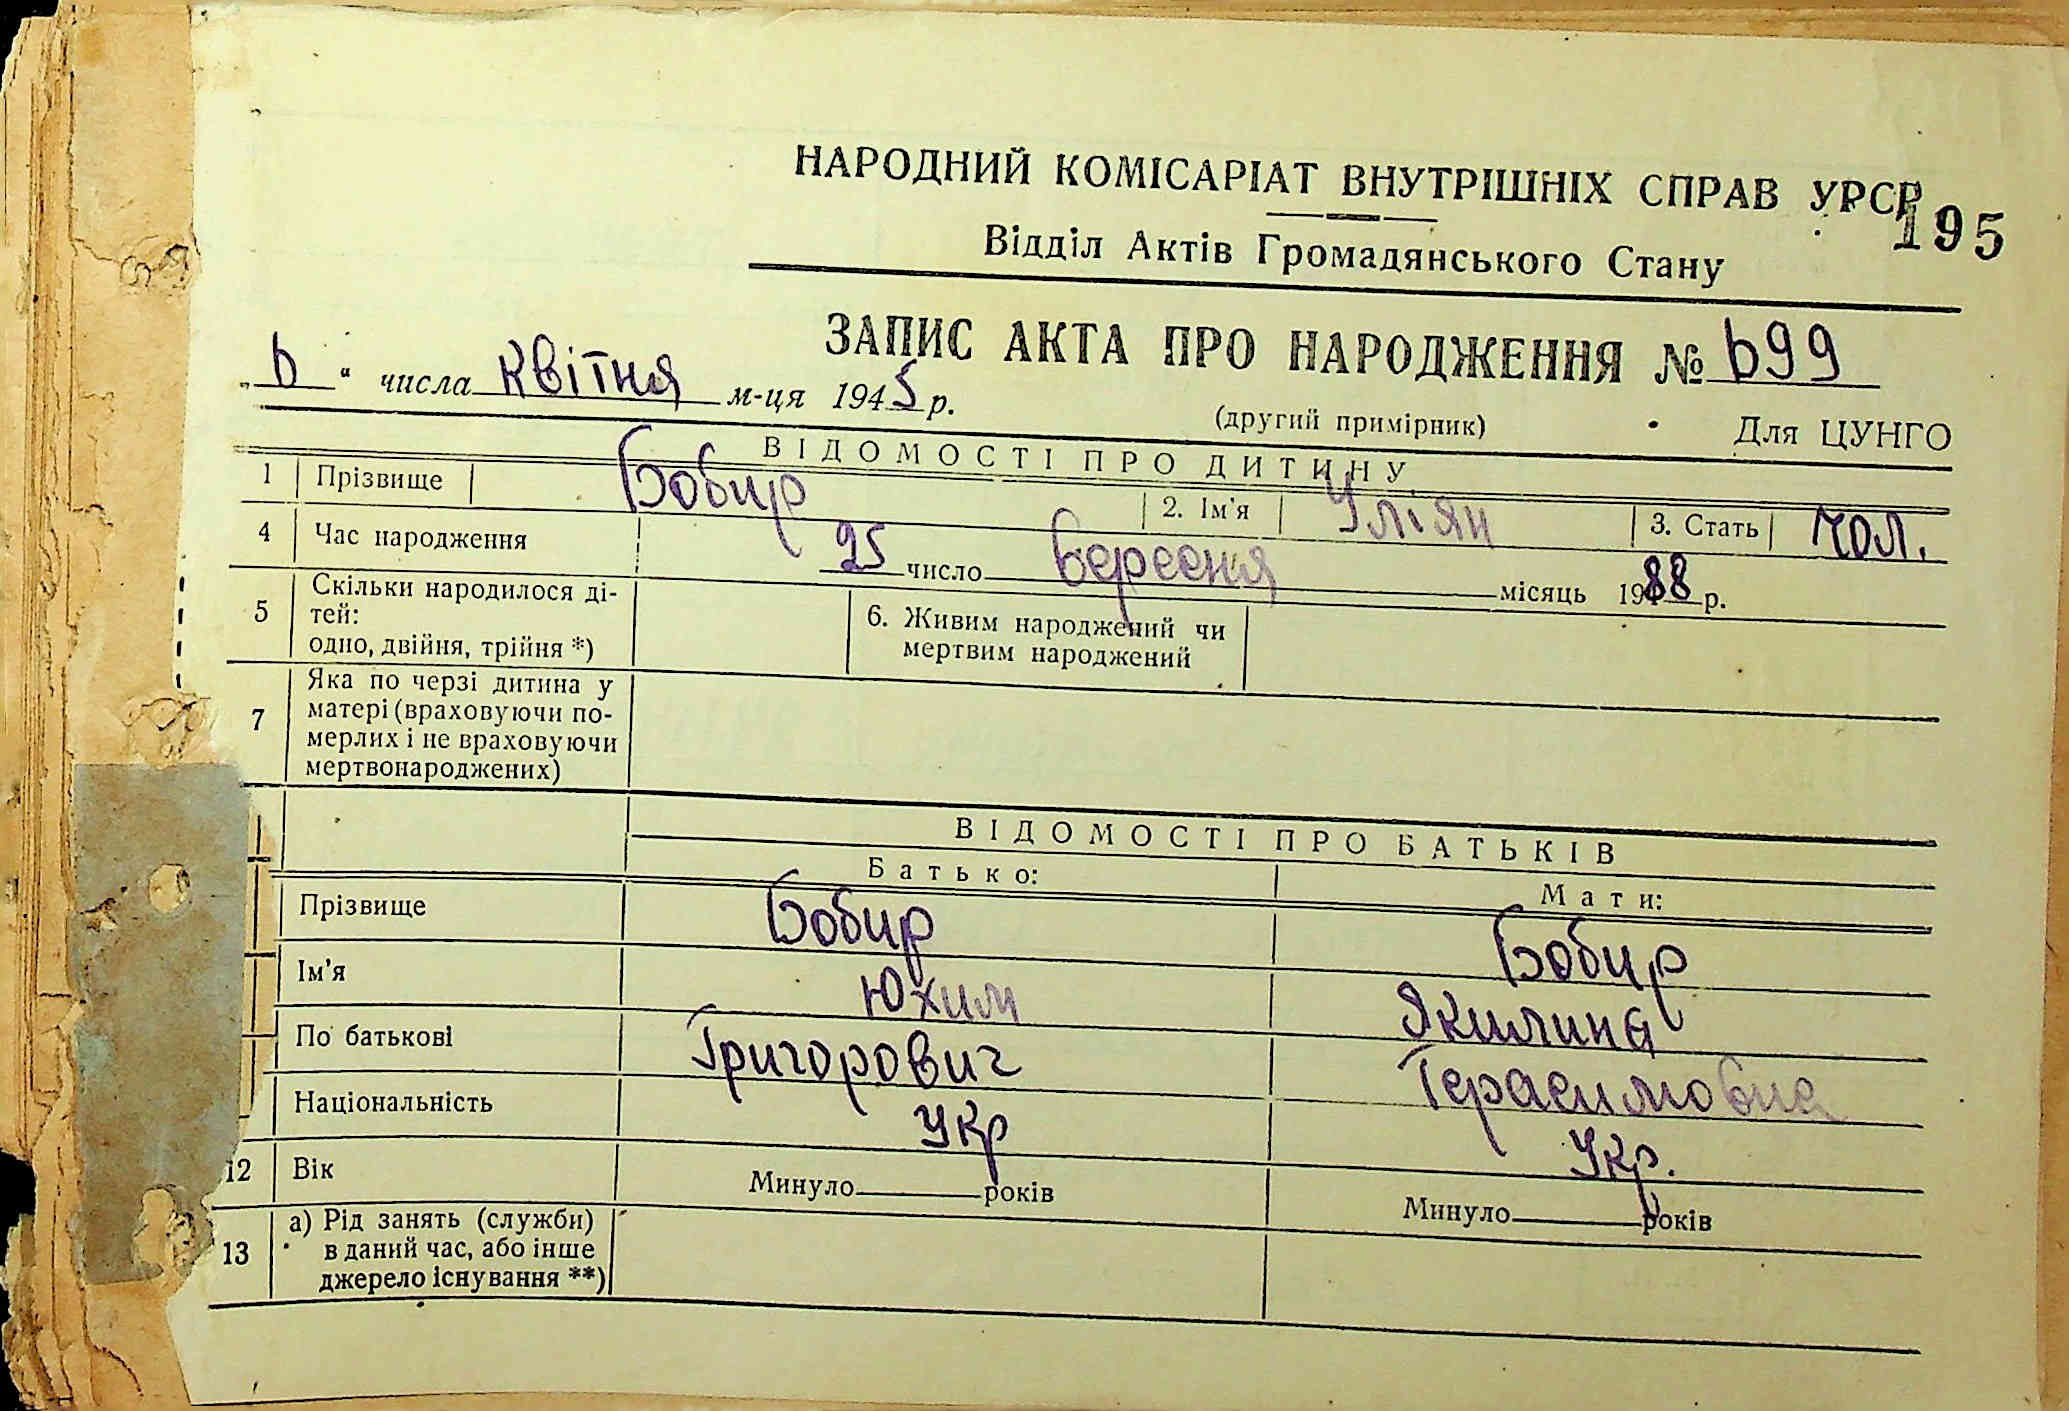 НАРОДНИЙ КОМІСАРІАТ ВНУТРІШНІХ СПРАВ УРСР
195
Відділ Актів Громадянського Стану
ЗАПИС АКТА ПРО НАРОДЖЕННЯ № 699
„6“ числа квітня м-ця 1945 р.
(другий примірник) Для ЦУНГО
ВІДОМОСТІ ПРО ДИТИНУ
1 Прізвище Бобир 2. Ім'я Уліян 3. Стать чол.
4 Час народження 25 число вересня місяць 1988 р.
5 Скільки народилося ді-
тей:
одно, двійня, трійня *)
6. Живим народжений чи
мертвим народжений
7 Яка по черзі дитина у
матері (враховуючи по-
мерлих і не враховуючи
мертвонароджених)
ВІДОМОСТІ ПРО БАТЬКІВ
Батько: Мати:
Прізвище Бобир Бобир
Ім'я Юхим Якилина
По батькові Григорович Герасимовна
Національність Укр Укр.
12 Вік Минуло років Минуло років
13 а) Рід занять (служби)
в даний час, або інше
джерело існування **)